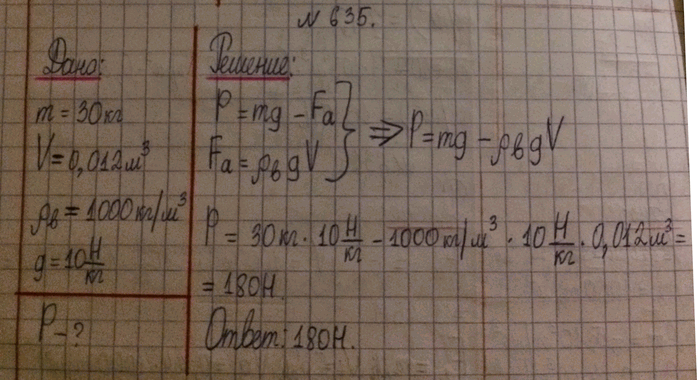 № 635.
Дано:
m = 30 кг
V = 0,012 м³
ρв = 1000 кг/м³
g = 10 Н/кг
P - ?
Решение:
P = mg - Fa
Fa = ρв g V
} ⇒ P = mg - ρв g V
P = 30 кг · 10 Н/кг - 1000 кг/м³ · 10 Н/кг · 0,012 м³ =
= 180 Н.
Ответ: 180 Н.